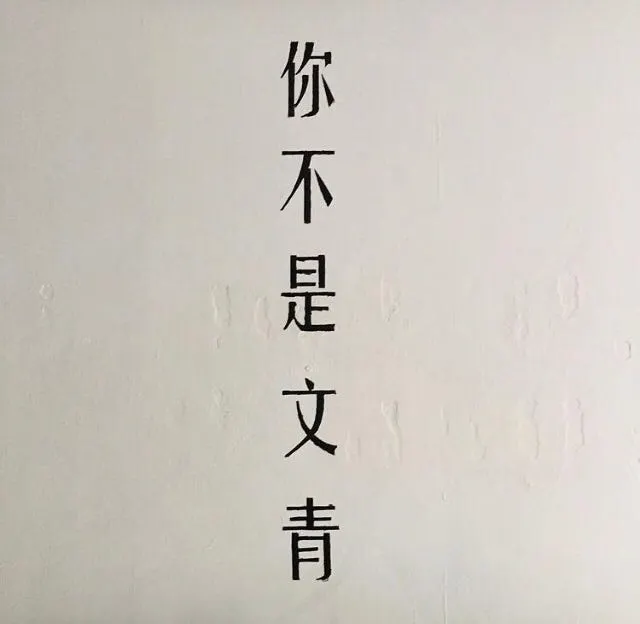 你不是文青